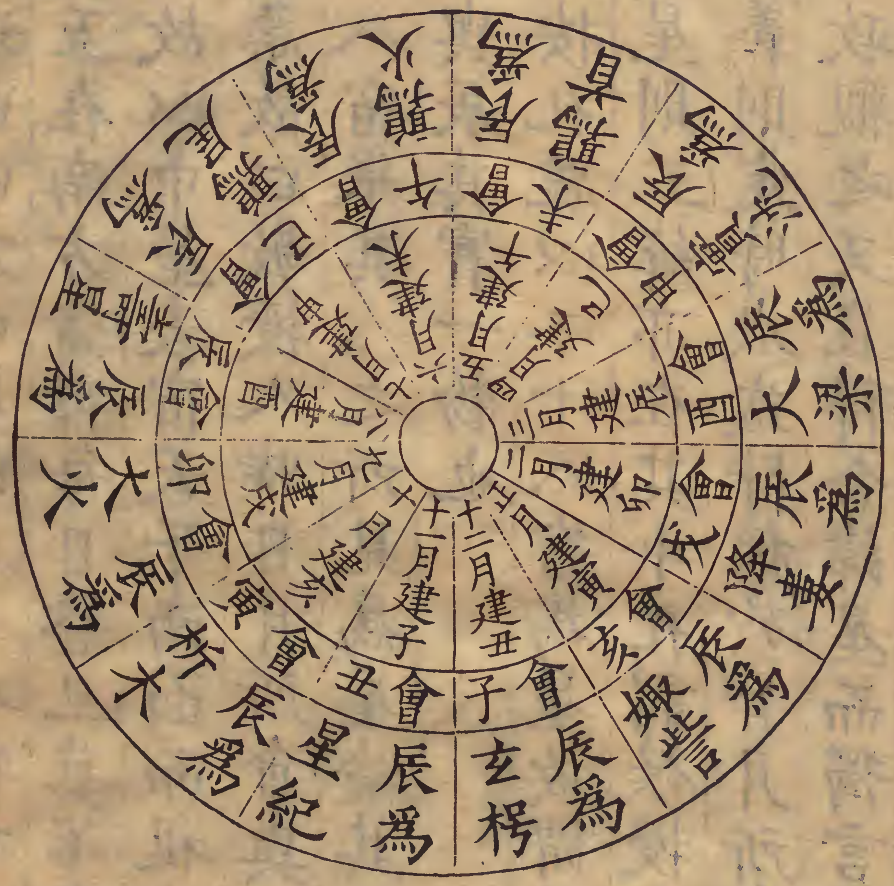 正月建寅
會亥
辰爲娵訾
二月建卯
會戌
辰爲降婁
三月建辰
會酉
辰爲大梁
四月建巳
會申
辰爲實沈
五月建午
會未
辰爲鶉首
六月建未
會午
辰爲鶉火
七月建申
會巳
辰爲鶉尾
八月建酉
會辰
辰爲壽星
九月建戌
會卯
辰爲大火
十月建亥
會寅
辰爲析木
十一月建子
會丑
辰爲星紀
十二月建丑
會子
辰爲玄枵